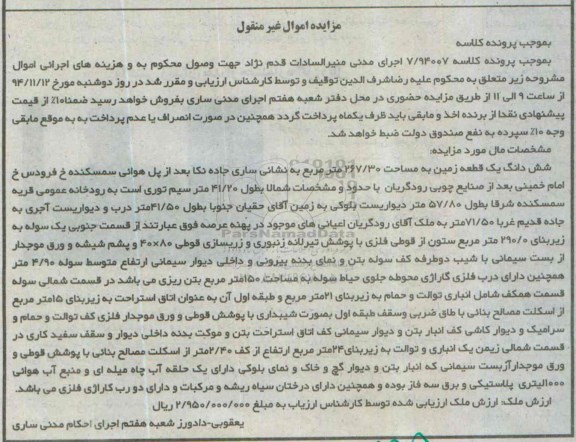 مزایده اموال غیر منقول
بموجب پرونده کلاسه
بموجب پرونده کلاسه ۷/۹۴۰۰۷ اجرای مدنی منیرالسادات قدم نژاد جهت وصول محکوم به و هزینه های اجرائی اموال
مشروحه زیر متعلق به محکوم علیه رضاشرف الدین توقیف و توسط کارشناس ارزیابی و مقرر شد در روز دوشنبه مورخ ۹۴/۱۱/۱۲
از ساعت ۹ الی ۱۱ از طریق مزایده حضوری در محل دفتر شعبه هفتم اجرای مدنی ساری بفروش خواهد رسید ضمنا۱۰٪ از قیمت
پیشنهادی نقدا از برنده اخذ و مابقی باید ظرف یکماه پرداخت گردد همچنین در صورت انصراف یا عدم پرداخت به به موقع مابقی
وجه ۱۰٪ سپرده به نفع صندوق دولت ضبط خواهد شد.
مشخصات مال مورد مزایده:
شش دانگ یک قطعه زمین به مساحت ۲۶۷/۳۰ متر مربع به نشانی ساری جاده نکا بعد از پل هوائی سمسکنده خ فرودس خ
امام خمینی بعد از صنایع چوبی رودگریان با حدود و مشخصات شمالا بطول ۴۱/۲۰ متر سیم توری است به رودخانه عمومی قریه
سمسکنده شرقا بطول ۵۷/۸۰ متر دیواریست بلوکی به زمین آقای حقیان جنوبا بطول ۴۱/۵۰متر درب و دیواریست آجری به
جاده قدیم غربا ۷۱/۵۰متر به ملک آقای رودگریان اعیانی های موجود در پهنه عرصه فوق عبارتند از قسمت جنوبی یک سوله به
زیربنای ۲۹۰/۰ متر مربع ستون از قوطی فلزی با پوشش تیرلانه زنبوری و زیرسازی قوطی ۸۰×۴۰ و پشم شیشه و ورق موجدار
از بست سیمانی با شیب دوطرفه کف سوله بتن و نمای بدنه بیرونی و داخلی دیوار سیمانی ارتفاع متوسط سوله ۴/۹۰ متر
همچنین دارای درب فلزی گاراژی محوطه جلوی حیاط سوله به مساحت ۱۵۰متر مربع بتن ریزی می باشد در قسمت شمالی سوله
قسمت همکف شامل انباری توالت و حمام به زیربنای ۲۱متر مربع و طبقه اول آن به عنوان اتاق استراحت به زیربنای ۱۵متر مربع
از اسکلت مصالح بنائی با طاق ضربی وسقف طبقه اول بصورت شیبداری با پوشش قوطی و ورق موجدار فلزی کف توالت و حمام و
سرامیک و دیوار کاشی کف انبار بتن و دیوار سیمانی کف اتاق استراحت بتن و موکت بدنه داخلی دیوار و سقف سفید کاری در
قسمت شمالی زیمن یک انباری و توالت به زیربنای۲۴متر مربع ارتفاع از کف ۲/۴۰متر از اسکلت مصالح بنائی با پوشش قوطی و
ورق موجدارآزبست سیمانی که انبار بتن و دیوار گچ و خاک و نمای بلوکی دارای یک حلقه آب چاه میله ای و منبع آب هوائی
۱۰۰۰لیتری پلاستیکی و برق سه فاز بوده و همچنین دارای درختان سیاه ریشه و مرکبات و دارای دو درب کاراژی فلزی می باشد.
ارزش ملک: ارزش ملک ارزیابی شده توسط کارشناس ارزیاب به مبلغ ۲/۹۵۰/۰۰۰/۰۰۰ ریال
یعقوبی-دادورز شعبه هفتم اجرای احکام مدنی ساری
ParsNamadData